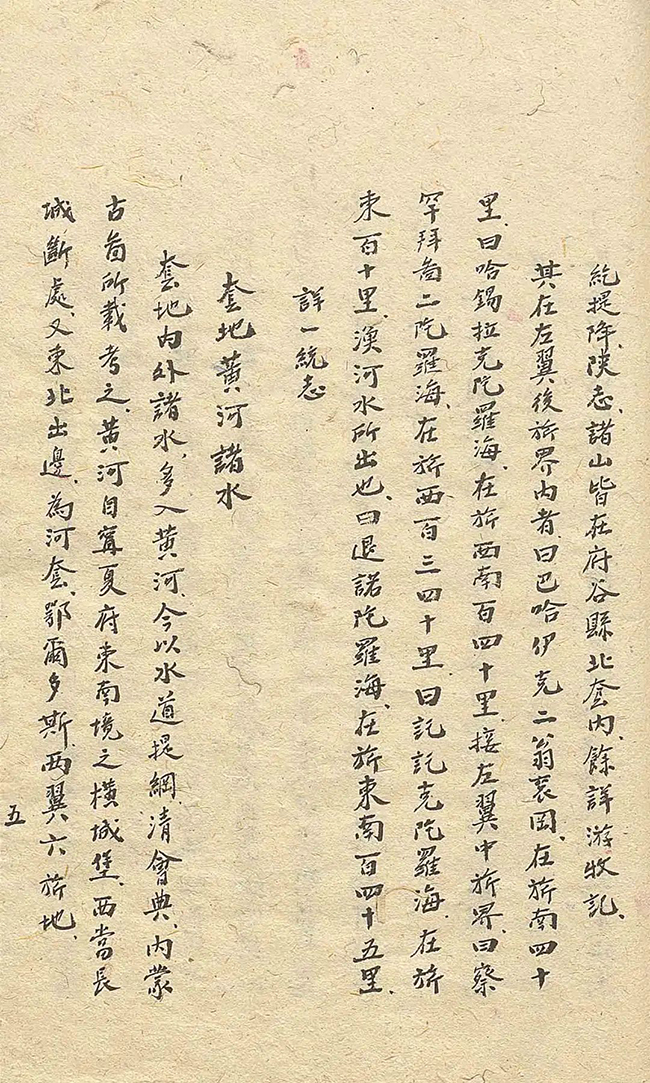 統提陸陝志、諸山皆在府谷縣北套內、餘詳游牧記、
其在左翼後旂界內者、曰巴哈伊克二翁衮岡、在旂南四十
里、曰哈錫拉克陀羅海、在旂西南百四十里、接左翼中旂界、曰察
罕拜啚二陀羅海、在旂西百三四十里、曰託託克陀羅海、在旂
東百十里、渙河水所出也、曰退諾陀羅海、在旂東南百四十五里、
詳一統志
套地黃河諸水
套地內外諸水、多入黃河、今以水道提綱、清會典、內蒙
古啚所載考之、黃河自寧夏府東南境之橫城堡、西當長
城斷處、又東北出邊、為河套、鄂爾多斯、兩翼六旂地、
五